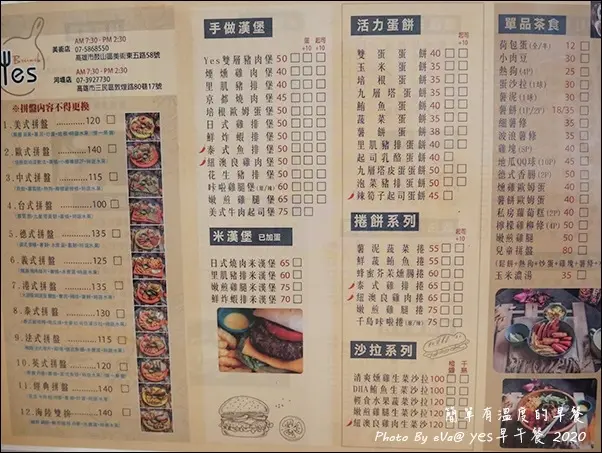 Yes
AM 7:30 - PM 2:30
美術店 07-5868550
高雄市鼓山區美術東五路58號
AM 7:30 - PM 2:30
河堤店 07-3927730
高雄市三民區敦煌路80巷17號
※拼盤內容不得更換
1.美式拼盤 ............120
2.歐式拼盤 ............140
3.中式拼盤 ............115
4.台式拼盤 ............100
5.德式拼盤 ............135
6.義式拼盤 ............135
7.港式拼盤 ............135
8.泰式拼盤 ............130
9.法式拼盤 ............115
10.英式拼盤 ............120
11.經典拼盤 ............110
12.海陸雙拚 ............140
手做漢堡
蛋+10 起司+10
Yes雙層豬肉堡 50
煙燻雞肉堡 50
里肌豬排堡 50
京都燒肉堡 45
培根歐姆蛋堡 50
日式雞排堡 50
鮮炸蝦排堡 50
泰式魚排堡 50
紐澳良雞肉堡 50
花生豬排堡 50
咔啦雞腿堡 60
嫩煎雞腿堡 50
美式牛肉起司堡 75
米漢堡 已加蛋
日式燒肉米漢堡 65
里肌豬排米漢堡 65
嫩煎雞腿米漢堡 75
鮮炸蝦排米漢堡 70
活力蛋餅
起司+10
雙蛋蛋餅 40
玉米蛋餅 35
培根蛋餅 35
九層塔蛋餅 35
鮪魚蛋餅 40
蔬菜蛋餅 35
薯餅蛋餅 38
里肌豬排蛋餅 40
起司乳酪蛋餅 40
九層塔皮蛋蛋餅 40
泡菜豬排蛋餅 45
辣筍子起司蛋餅 45
捲餅系列
起司+10
薯泥蔬菜捲 55
鮮蔬鮪魚捲 55
蜂蜜芥茉燻腸捲 60
泰式雞排捲 60
紐澳良雞肉捲 60
嫩煎雞腿捲 60
千島咔啦捲 75
沙拉系列
清爽燻雞生菜沙拉 100
DHA鮪魚生菜沙拉 100
輕食水果蔬菜沙拉 100
嫩煎雞腿生菜沙拉 120
紐澳良雞肉生菜沙拉 120
單品茶食
荷包蛋 12
小肉豆 30
熱狗(4P) 25
蛋沙拉(1球) 30
薯泥(1球) 30
薯餅(1P/2P) 18/35
細薯條 35
波浪薯條 45
雞塊(5P) 40
地瓜QQ球(10P) 45
德式香腸(2P) 50
燻雞歐姆蛋 40
薯餅歐姆蛋 40
私房蘿蔔糕(2P) 40
檸檬雞柳條(4P) 50
嫩煎雞腿 50
兒童拼盤 80
玉米濃湯 35
簡單有溫度的早餐
Photo By eVa@ yes早午餐 2020